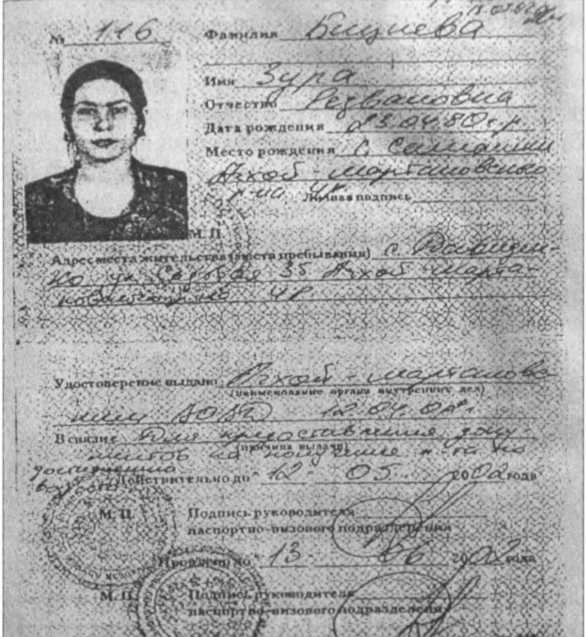 № 116
Фамилия Бициева
Имя Зура
Отчество Резвановна
Дата рождения 23.04.80 г.р.
Место рождения с. Самашки
Ачхой-Мартановского
р-на ЧР Личная подпись
М. П.
Адрес места жительства (места пребывания) с.
ул. 35 Ачхой-Марта-
ЧР
Удостоверение выдано Ачхой-Мартанов
(наименование органа внутренних дел)
12.04.02 г.
В связи с для
(причина выдачи)
на получение п-та по
достижению
Действительно до " 12 " 05 2002 года
М. П. Подпись руководителя
паспортно-визового подразделения
Продлено до " 13 " 06 2002 года
М. П. Подпись руководителя
паспортно-визового подразделения